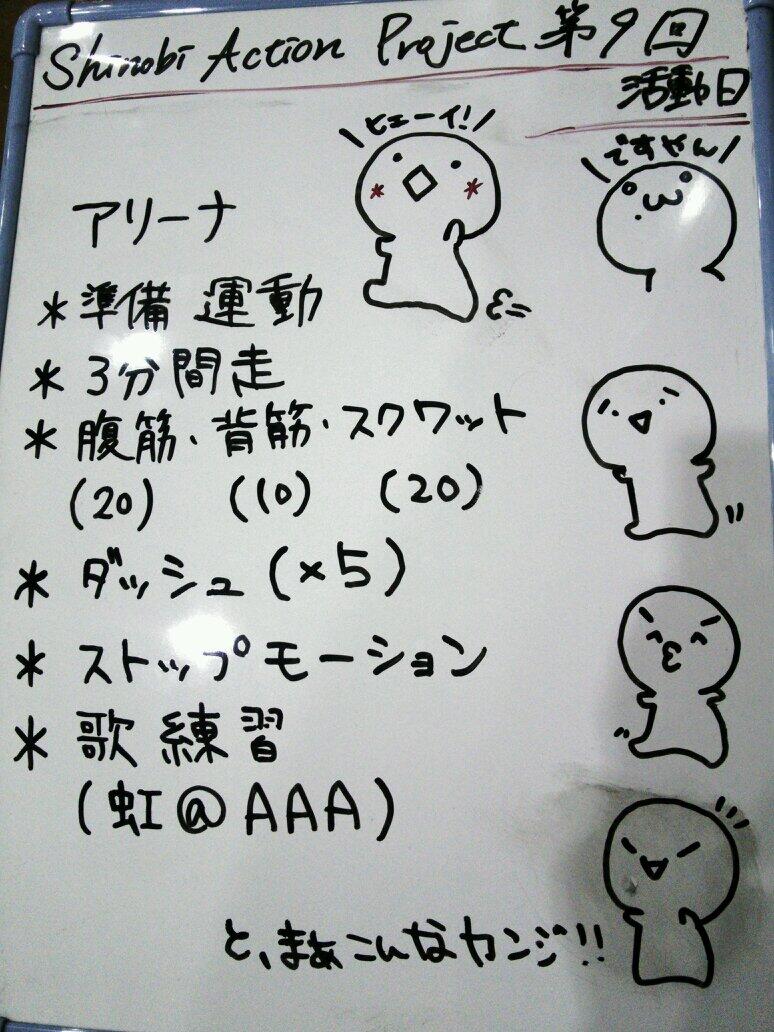 Shinobi Action Project 第9回
活動日
\ヒエーイ!/
\ですやん/
アリーナ
*準備運動
*3分間走
*腹筋・背筋・スクワット
(20) (10) (20)
*ダッシュ(×5)
*ストップモーション
*歌練習
(虹@AAA)
と、まぁこんなカンジ!!